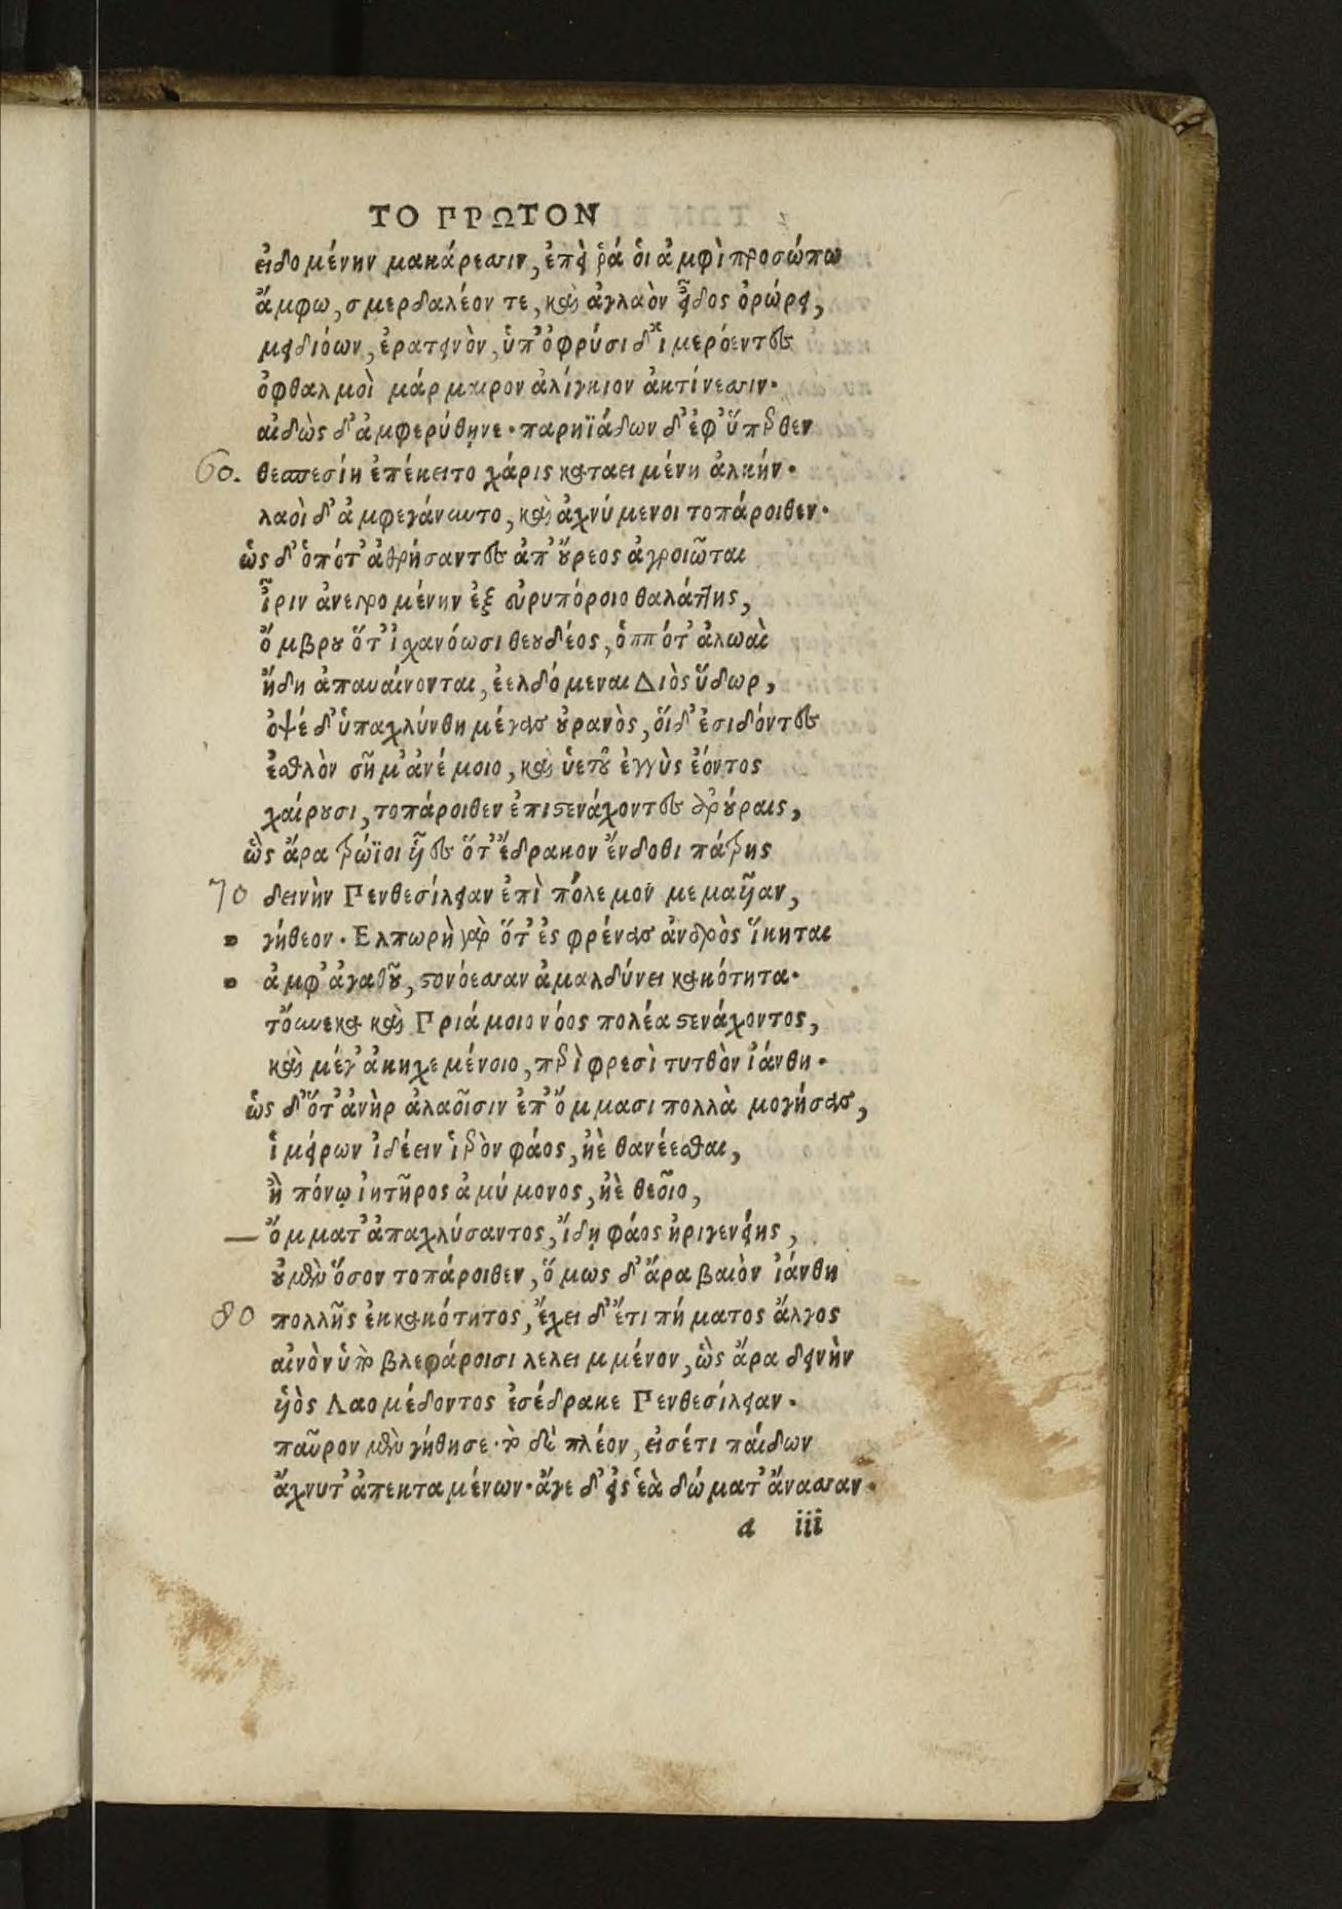 ΤΟ ΠΡΩΤΟΝ
εἰδομένην μακάρεσσιν, ἐπεὶ ῥά οἱ ἀμφὶ προσώπω
ἄμφω, σμερδαλέον τε, καὶ ἀγλαὸν εἶδος ὀρώρει,
μειδιόων, ἐρατεινὸν, ὑπ' ὀφρύσι δ' ἱμερόεντες
ὀφθαλμοὶ μάρμαιρον ἀλίγκιον ἀκτίνεσσιν·
αἰδὼς δ' ἀμφερύθηνε· παρηϊάδων δ' ἐφ' ὕπερθεν
60. θεσπεσίη ἐπέκειτο χάρις καταειμένη ἀλκήν·
λαοὶ δ' ἀμφεγάνυντο, καὶ ἀχνύμενοι τοπάροιθεν·
ὡς δ' ὁπότ' ἀθρήσαντες ἀπ' οὔρεος ἀγροιῶται
ἶριν ἀνεγρομένην ἐξ εὐρυπόροιο θαλάττης,
ὄμβρου ὅτ' ἰχανόωσι θεουδέος, ὁππότ' ἀλωαὶ
ἤδη ἀπαυαίνονται, ἐελδόμεναι Διὸς ὕδωρ,
ὀψέ δ' ὑπαχλύνθη μέγας οὐρανὸς, οἵδ' ἐσιδόντες
ἐσθλὸν σῆμ' ἀνέμοιο, καὶ ὑετοῦ ἐγγὺς ἐόντος
χαίρουσι, τοπάροιθεν ἐπιστενάχοντες ἀρούραις,
ὣς ἄρα τρώϊοι ἧες ὅτ' ἔδρακον ἔνδοθι πάτρης
70 δεινὴν Πενθεσίλειαν ἐπὶ πόλεμον μεμαυῖαν,
γήθεον· Ἐλπωρὴ γὰρ ὅτ' ἐς φρένας ἀνδρὸς ἵκηται
ἀμφ' ἀγαθοῦ, στονόεσσαν ἀμαλδύνει κακότητα·
τοὔνεκα καὶ Πριάμοιο νόος πολέα στενάχοντος,
καὶ μέγ' ἀκηχεμένοιο, περὶ φρεσὶ τυτθὸν ἰάνθη·
ὡς δ' ὅτ' ἀνὴρ ἀλαοῖσιν ἐπ' ὄμμασι πολλὰ μογήσας,
ἱμείρων ἰδέειν ἱερὸν φάος, ἠὲ θανέεσθαι,
ἢ πόνῳ ἰητῆρος ἀμύμονος, ἠὲ θεοῖο,
ὄμματ' ἀπαχλύσαντος, ἴδῃ φάος ἠριγενείης,
οὐ μὲν ὅσον τοπάροιθεν, ὅμως δ' ἄρα βαιὸν ἰάνθη
80 πολλῆς ἐκ κακότητος, ἔχει δ' ἔτι πήματος ἄλγος
αἰνὸν ὑπὸ βλεφάροισι λελειμμένον, ὣς ἄρα δεινὴν
υἱὸς Λαομέδοντος ἐσέδρακε Πενθεσίλειαν·
παῦρον μὲν γήθησε· τὸ δὲ πλέον, εἰσέτι παίδων
ἄχνυτ' ἀπεκταμένων· ἄγε δ' εἰς ἑὰ δώματ' ἄνασσαν·
a iii